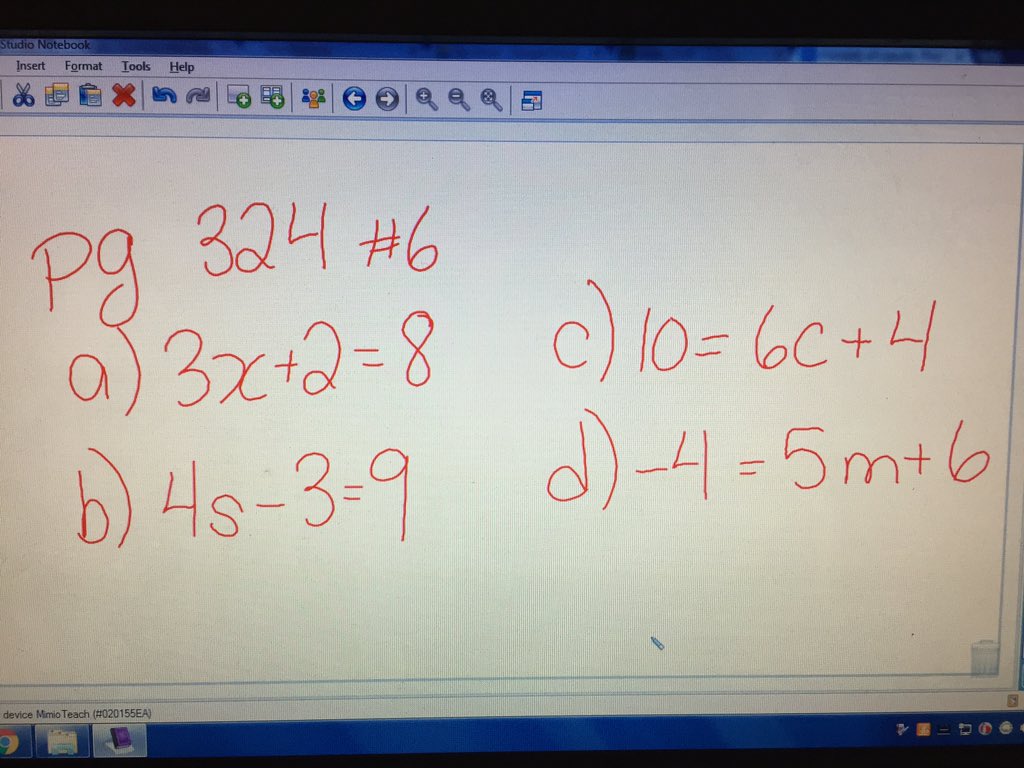 Studio Notebook
Insert Format Tools Help
pg 324 #6
a) 3x+2=8
b) 4s-3=9
c) 10=6c+4
d) -4=5m+6
device MimioTeach (#020155EA)